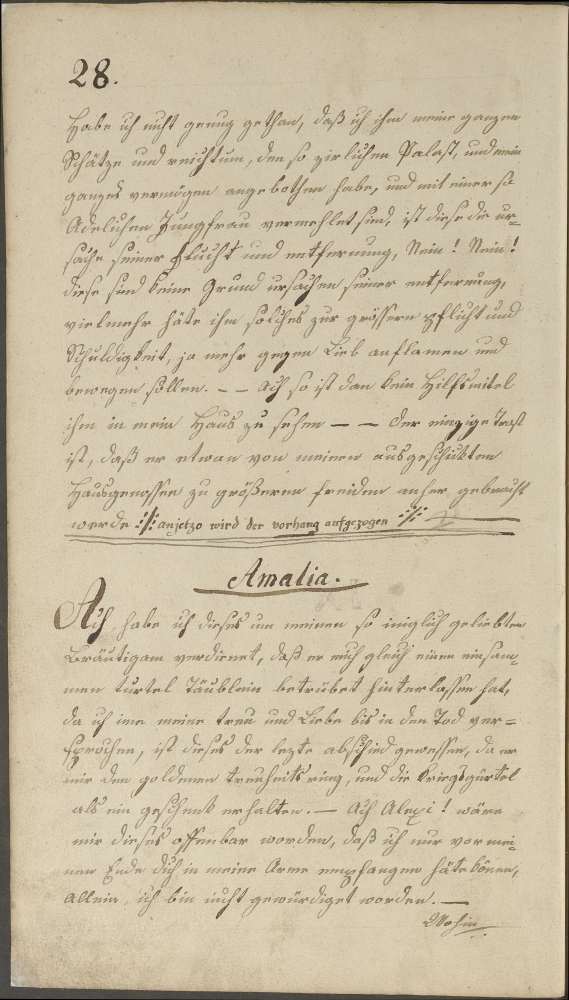 28.
Habe ich nicht genug gethan, daß ich ihm meine ganzen
Schätze und reichtum, den so zirlichen Palast, und mein
ganzes vermögen angebothen habe, und mit einer so
Adelichen Jungfrau vermehlet sind, ist diese die ur=
sache seiner flucht und entfernung, Nein! Nein!
diese sind keine Grund ursachen seiner entfernung,
vielmehr häte ihm solches zur grössern pflicht und
Schuldigkeit, ja mehr gegen Lieb anflamen und
bewegen sollen. — — Ach so ist dan kein Hilfsmitel
ihm in mein Haus zu sehen — — der einzige Trost
ist, daß er etwan von meinen ausgeschickten
Hausgenossen zu größeren freiden anher gebracht
werde :/: anjetzo wird der vorhang aufgezogen :/:
Amalia.
Ach, habe ich dieses um meinen so iniglich geliebten
Bräutigam verdienet, daß er mich gleich einen einsam=
men turtel Täublein betrübet hinterlassen hat,
da ich ime meine treu und Liebe bis in den Tod ver=
sprochen, ist dieses der lezte abschied gewessen, da er
mir den goldenen treuheits ring, und die Kriegsgürtel
als ein geschenk erhalten. — Ach Alexi! wäre
mir dieses offenbar worden, daß ich nur vor mei=
nen Ende dich in meine Arme empfangen häte könen,
allein, ich bin nicht gewürdiget worden. —
Wohin